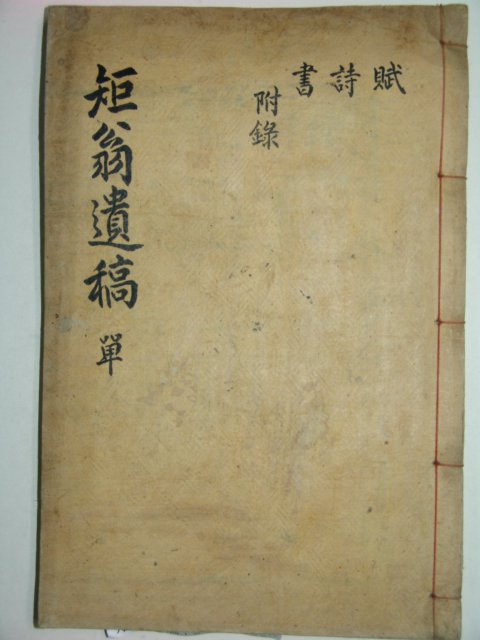 賦詩書
附錄
矩翁遺稿 單